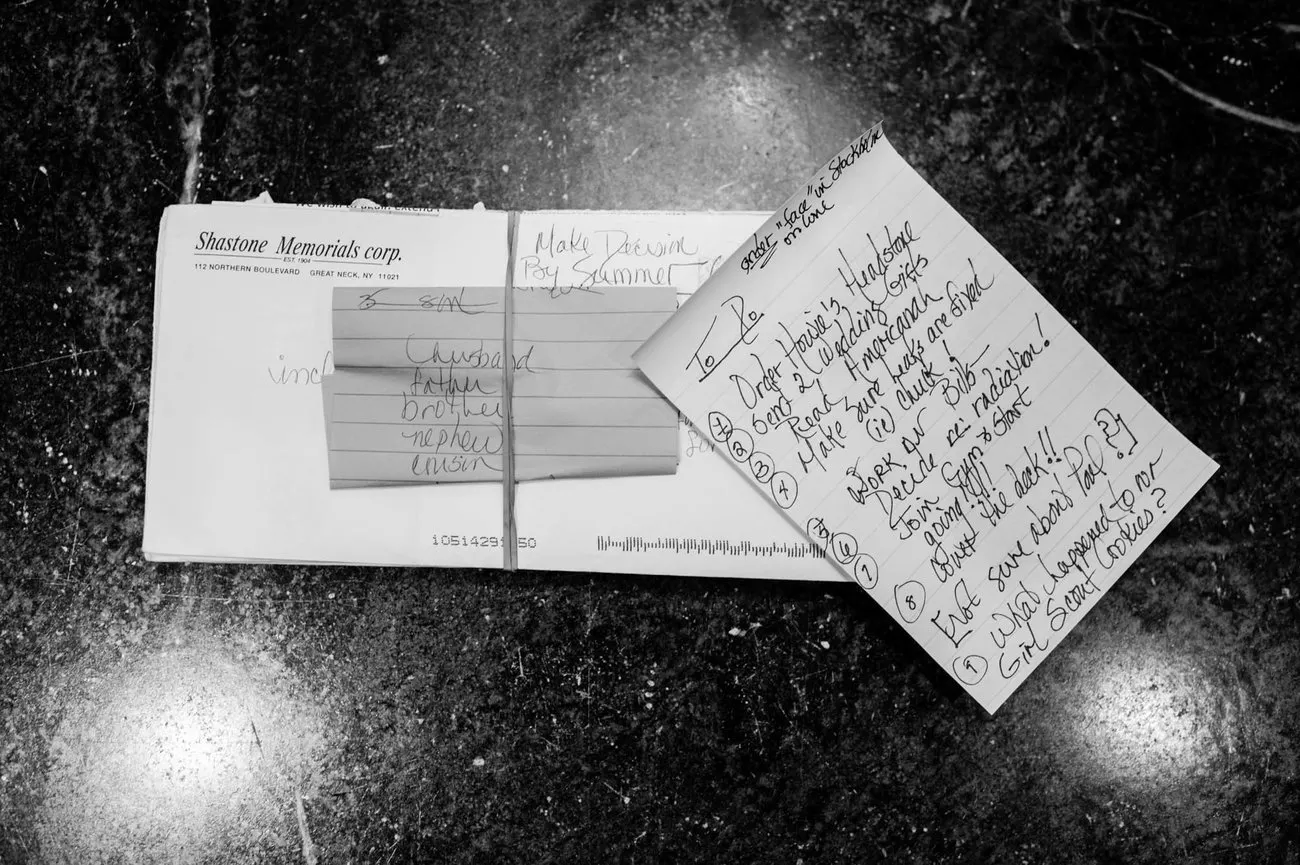 Shastone Memorials corp.
EST. 1904
112 NORTHERN BOULEVARD GREAT NECK, NY 11021
Make Decision
By Summer
husband
father
brother
nephew
cousin
order "face" in Stockholm
on line
To Do
① Order Howie's Headstone
② Send 2 Wedding Gifts
③ Read Americanah
④ Make sure leaks are fixed
(ie) Chuck!
⑤ Work on Bills
⑥ Decide re: radiation!
⑦ Join Gym & Start
going!!!
⑧ Covet the deck!!
[Not sure about Pool?]
⑨ What happened to our
Girl Scout Cookies?